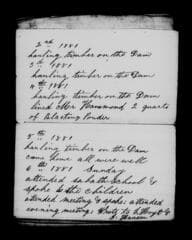 2nd 1881
hauling timber on the Dam
3rd 1881
hauling timber on the Dam
4th 1881
hauling timber on the Dam
lined Mr Hammond 2 quarts
of blasting powder
5th 1881
hauling timber on the Dam
came home all were well
6th 1881 Sunday
attended sabath School &
spoke to the children
attended meeting & spoke attended
evening meeting.